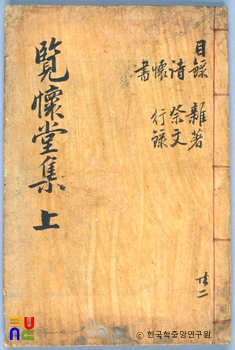 目錄 雜著
詩 祭文
懷 行錄
書
覽懷堂集 上
共二
© 한국학중앙연구원